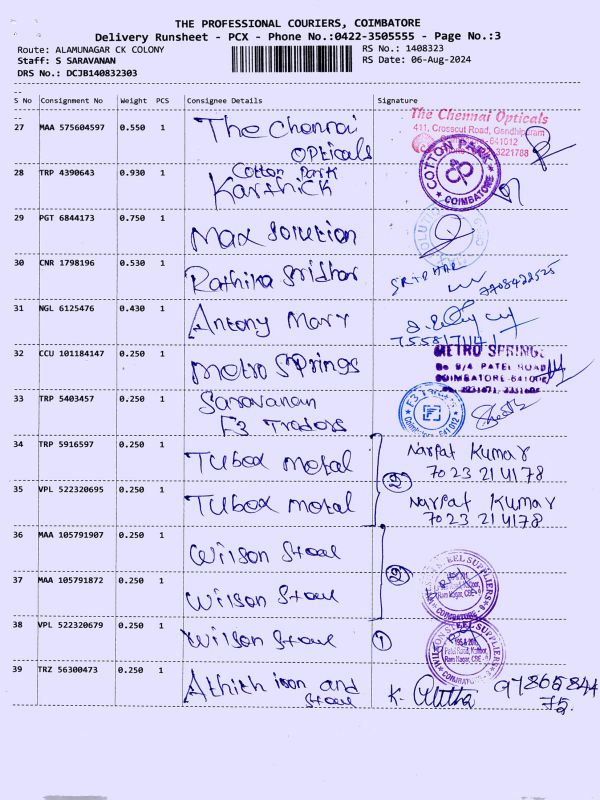 THE PROFESSIONAL COURIERS, COIMBATORE
Delivery Runsheet - PCX - Phone No.:0422-3505555 - Page No.:3
Route: ALAMUNAGAR CK COLONY RS No.: 1408323
Staff: S SARAVANAN RS Date: 06-Aug-2024
DRS No.: DCJB140832303
S No Consignment No Weight PCS Consignee Details Signature
27 MAA 575604597 0.550 1 The Chennai
Opticals
The Chennai Opticals
411, Crosscut Road, Gandhipuram
641012
3221788
28 TRP 4390643 0.930 1 Cotton Park
Karthick
COTTON PARK
COIMBATORE
29 PGT 6844173 0.750 1 Max Solution
30 CNR 1798196 0.530 1 Rathika Sridhar
SRIDHAR
31 NGL 6125476 0.430 1 Antony Mary
32 CCU 101184147 0.250 1 Metro Springs
METRO SPRINGS
No 9/4 PATEL ROAD
COIMBATORE-641009
33 TRP 5403457 0.250 1 Saravanan
F3 Traders
34 TRP 5916597 0.250 1 Tubox Metal Narpat Kumar
7023214178
35 VPL 522320695 0.250 1 Tubox Metal (2) Narpat Kumar
7023214178
36 MAA 105791907 0.250 1 Wilson Steel
37 MAA 105791872 0.250 1 Wilson Steel (2)
38 VPL 522320679 0.250 1 Wilson Steel (1)
WILSON STEEL SUPPLIERS
Ram Nagar, CBE - 9
COIMBATORE
39 TRZ 56300473 0.250 1 Athith iron and
Steel
K.